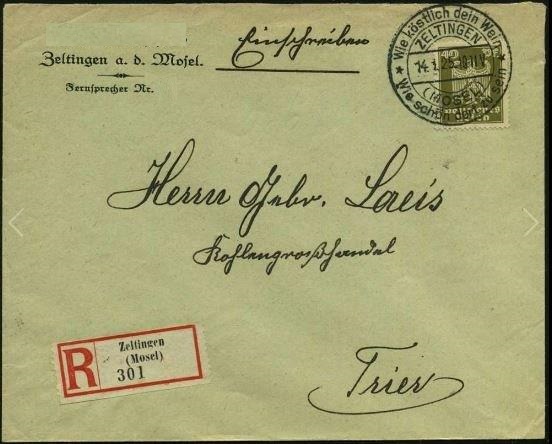 Zeltingen a. d. Mosel.
Fernsprecher Nr.
Einschreiben
Wie köstlich dein Wein
ZELTINGEN
14.1.25
(MOSEL)
Wie schön bei dir zu sein
Herrn Gebr. Laeis
Kohlengroßhandel
Trier
R
Zeltingen
(Mosel)
301